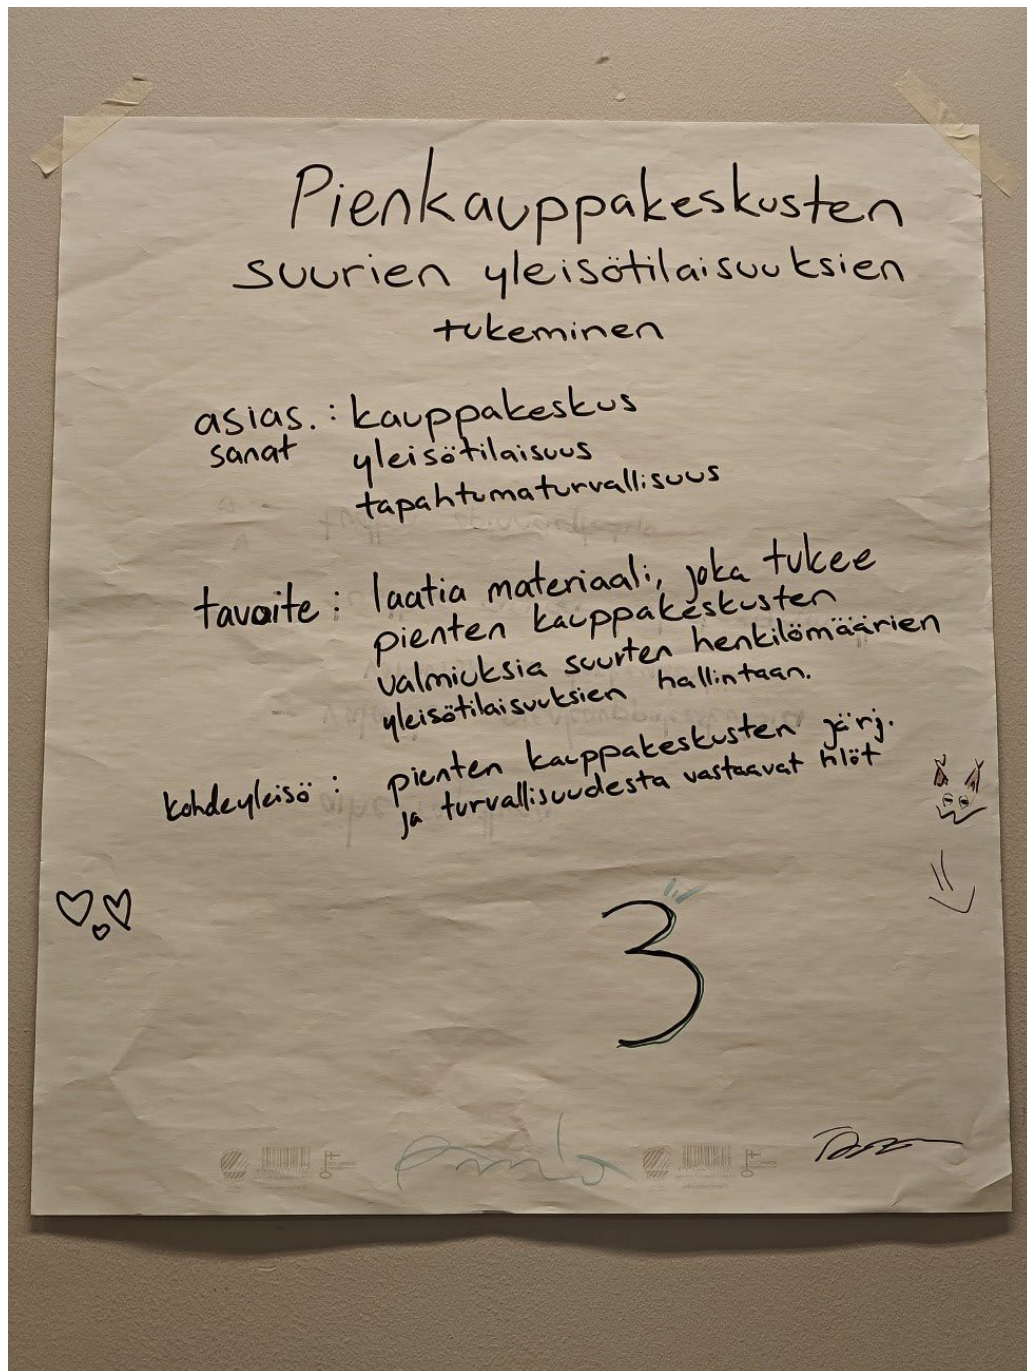 Pienkauppakeskusten
suurien yleisötilaisuuksien
tukeminen
asias. : kauppakeskus
sanat yleisötilaisuus
tapahtumaturvallisuus
tavoite : laatia materiaali, joka tukee
pienten kauppakeskusten
valmiuksia suurten henkilömäärien
yleisötilaisuuksien hallintaan.
kohdeyleisö : pienten kauppakeskusten järj.
ja turvallisuudesta vastaavat hlöt
3